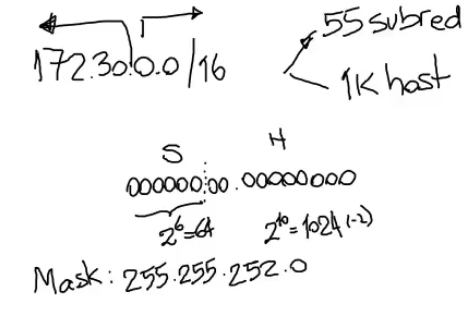 172.30.0.0/16
55 subred
1K host
S H
000000:00.00000000
2^6=64 2^10=1024(-2)
Mask: 255.255.252.0